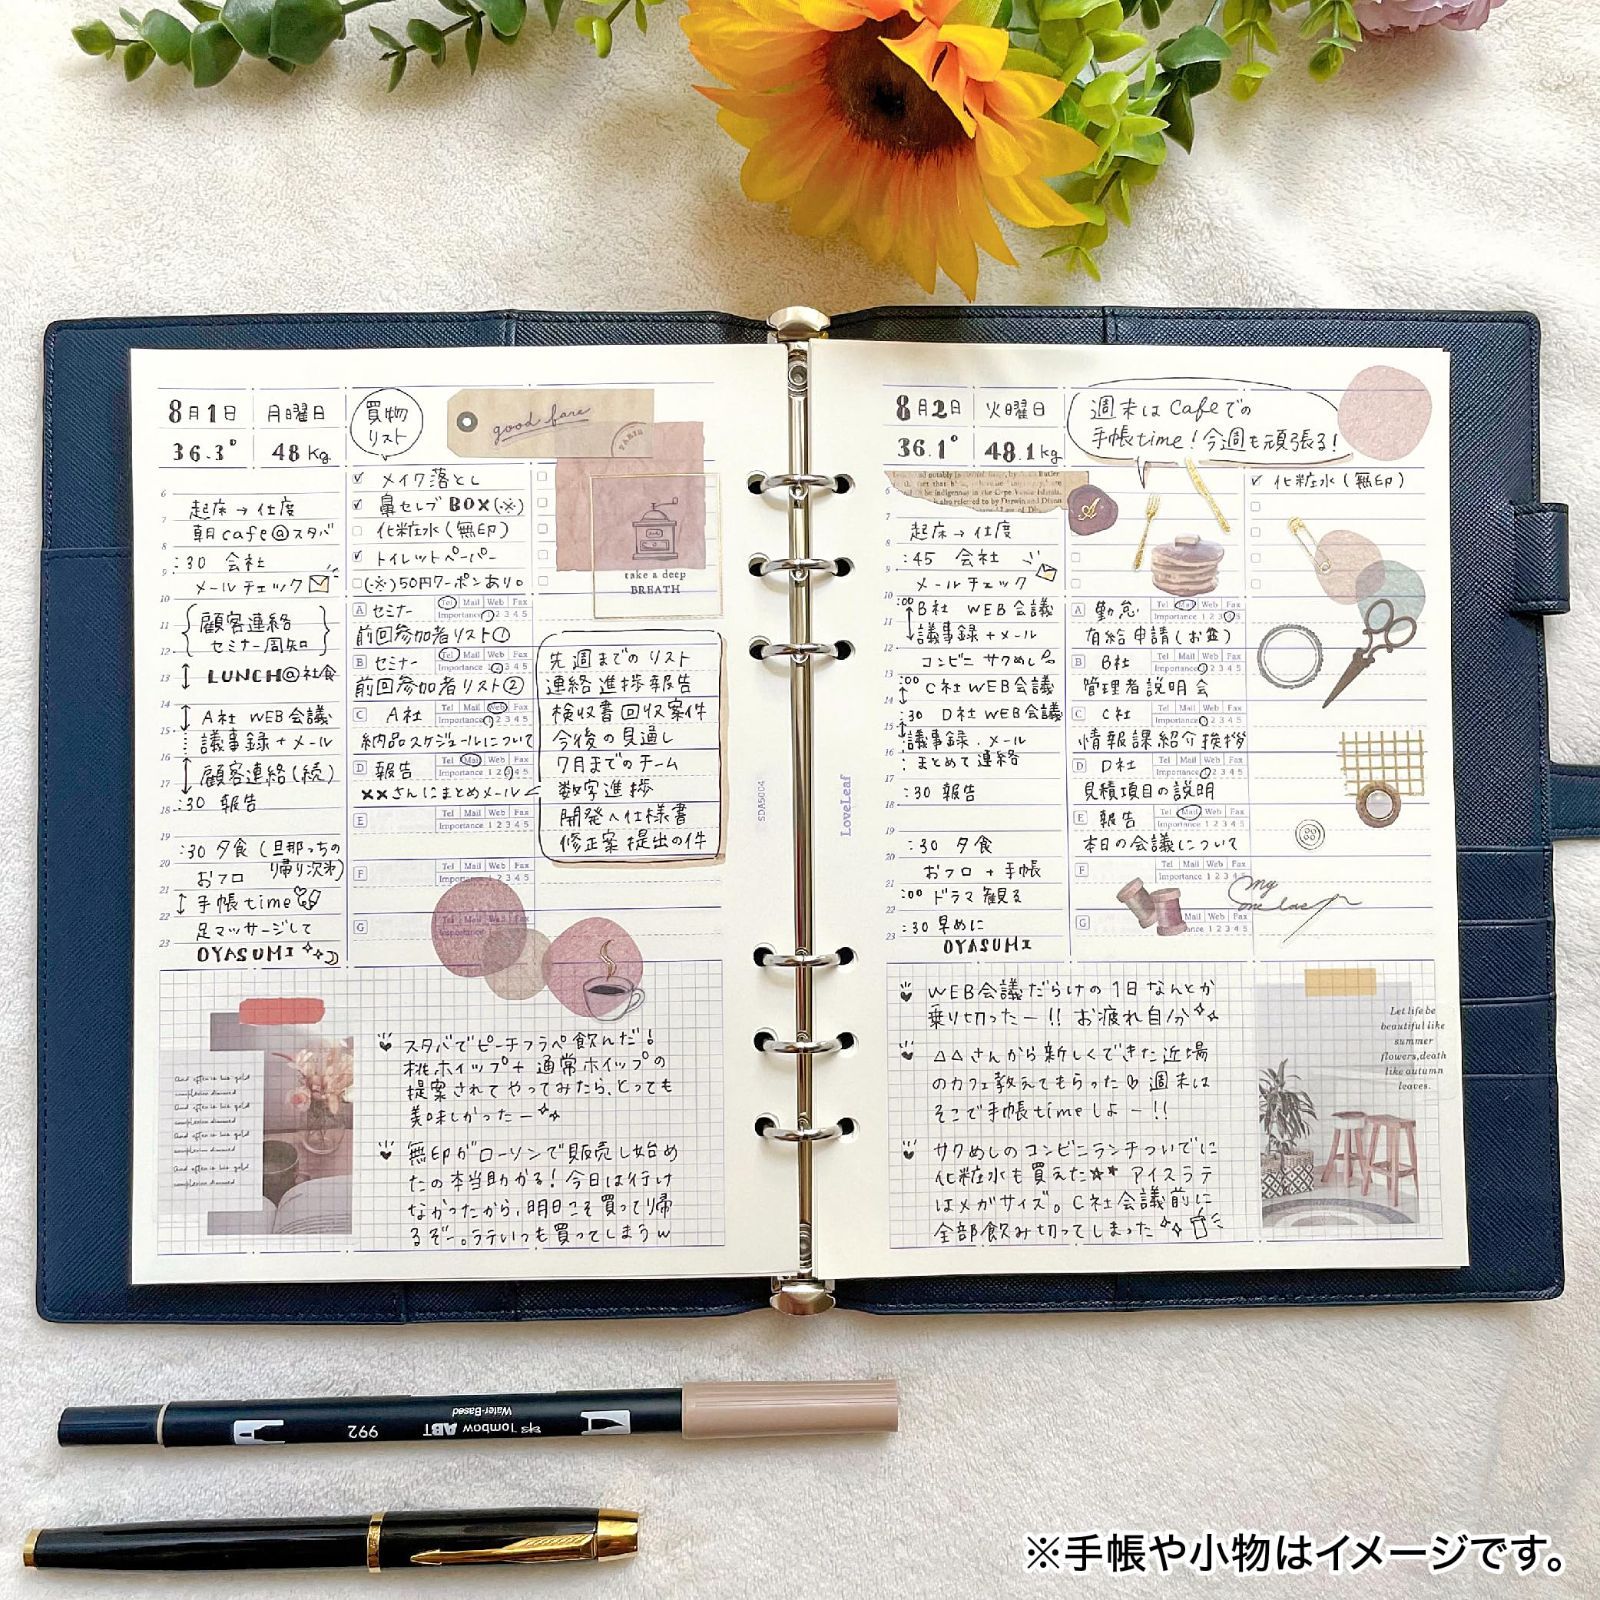 8月1日 月曜日
36.3° 48kg
買物
リスト
good fare
PARIS
take a deep
BREATH
6
7 起床→仕度
8 朝cafe@スタバ
:30 会社
9 メールチェック
10
11 顧客連絡
セミナー周知
12
13 LUNCH@社食
14
A社 WEB会議
15 議事録+メール
16
17 顧客連絡(続)
18 :30 報告
19
:30 夕食(旦那っちの
帰り次第)
20 おフロ
21 手帳time
22 足マッサージして
23 OYASUMI
メイク落とし
鼻セレブBOX(※)
化粧水(無印)
トイレットペーパー
(※)50円クーポンあり。
A セミナー Tel Mail Web Fax
Importance 1 2 3 4 5
前回参加者リスト①
B セミナー Tel Mail Web Fax
Importance 1 2 3 4 5
前回参加者リスト②
C A社 Tel Mail Web Fax
Importance 1 2 3 4 5
納品スケジュールについて
D 報告 Tel Mail Web Fax
Importance 1 2 3 4 5
××さんにまとめメール
E Tel Mail Web Fax
Importance 1 2 3 4 5
F Tel Mail Web Fax
G Tel Mail Web Fax
先週までのリスト
連絡進捗報告
検収書回収案件
今後の見通し
7月までのチーム
数字進捗
開発へ仕様書
修正案提出の件
スタバでピーチフラペ飲んだ!
桃ホイップ+通常ホイップの
提案されてやってみたら、とっても
美味しかったー
無印がローソンで販売し始め
たの本当助かる!今日は行け
なかったから、明日こそ買って帰
るぞー。ラテいつも買ってしまうw
SDA5004
LoveLeaf
8月2日 火曜日
36.1° 48.1kg
週末はcafeでの
手帳time!今週も頑張る!
A
6
7 起床→仕度
8 :45 会社
9 メールチェック
10 :00 B社 WEB会議
11 議事録+メール
12 コンビニ サクめし
13 :00 C社WEB会議
14 :30 D社WEB会議
15 議事録.メール
16 :まとめて連絡
17 :30 報告
18
19 :30 夕食
20 おフロ+手帳
21 :00 ドラマ観る
22 :30 早めに
23 OYASUMI
化粧水(無印)
A 勤怠 Tel Mail Web Fax
Importance 1 2 3 4 5
有給申請(お盆)
B B社 Tel Mail Web Fax
Importance 1 2 3 4 5
管理者説明会
C C社 Tel Mail Web Fax
Importance 1 2 3 4 5
情報課紹介挨拶
D D社 Tel Mail Web Fax
Importance 1 2 3 4 5
見積項目の説明
E 報告 Tel Mail Web Fax
Importance 1 2 3 4 5
本日の会議について
F Tel Mail Web Fax
G Web Fax
WEB会議だらけの1日なんとか
乗り切ったー!!お疲れ自分
△△さんから新しくできた近場
のカフェ教えてもらった♡週末は
そこで手帳timeしよー!!
サクめしのコンビニランチついでに
化粧水も買えた★★ アイスラテ
はメガサイズ。C社会議前に
全部飲み切ってしまった
Let life be
beautiful like
summer
flowers,death
like autumn
leaves.
992 Tombow ABT
Water-Based
※手帳や小物はイメージです。